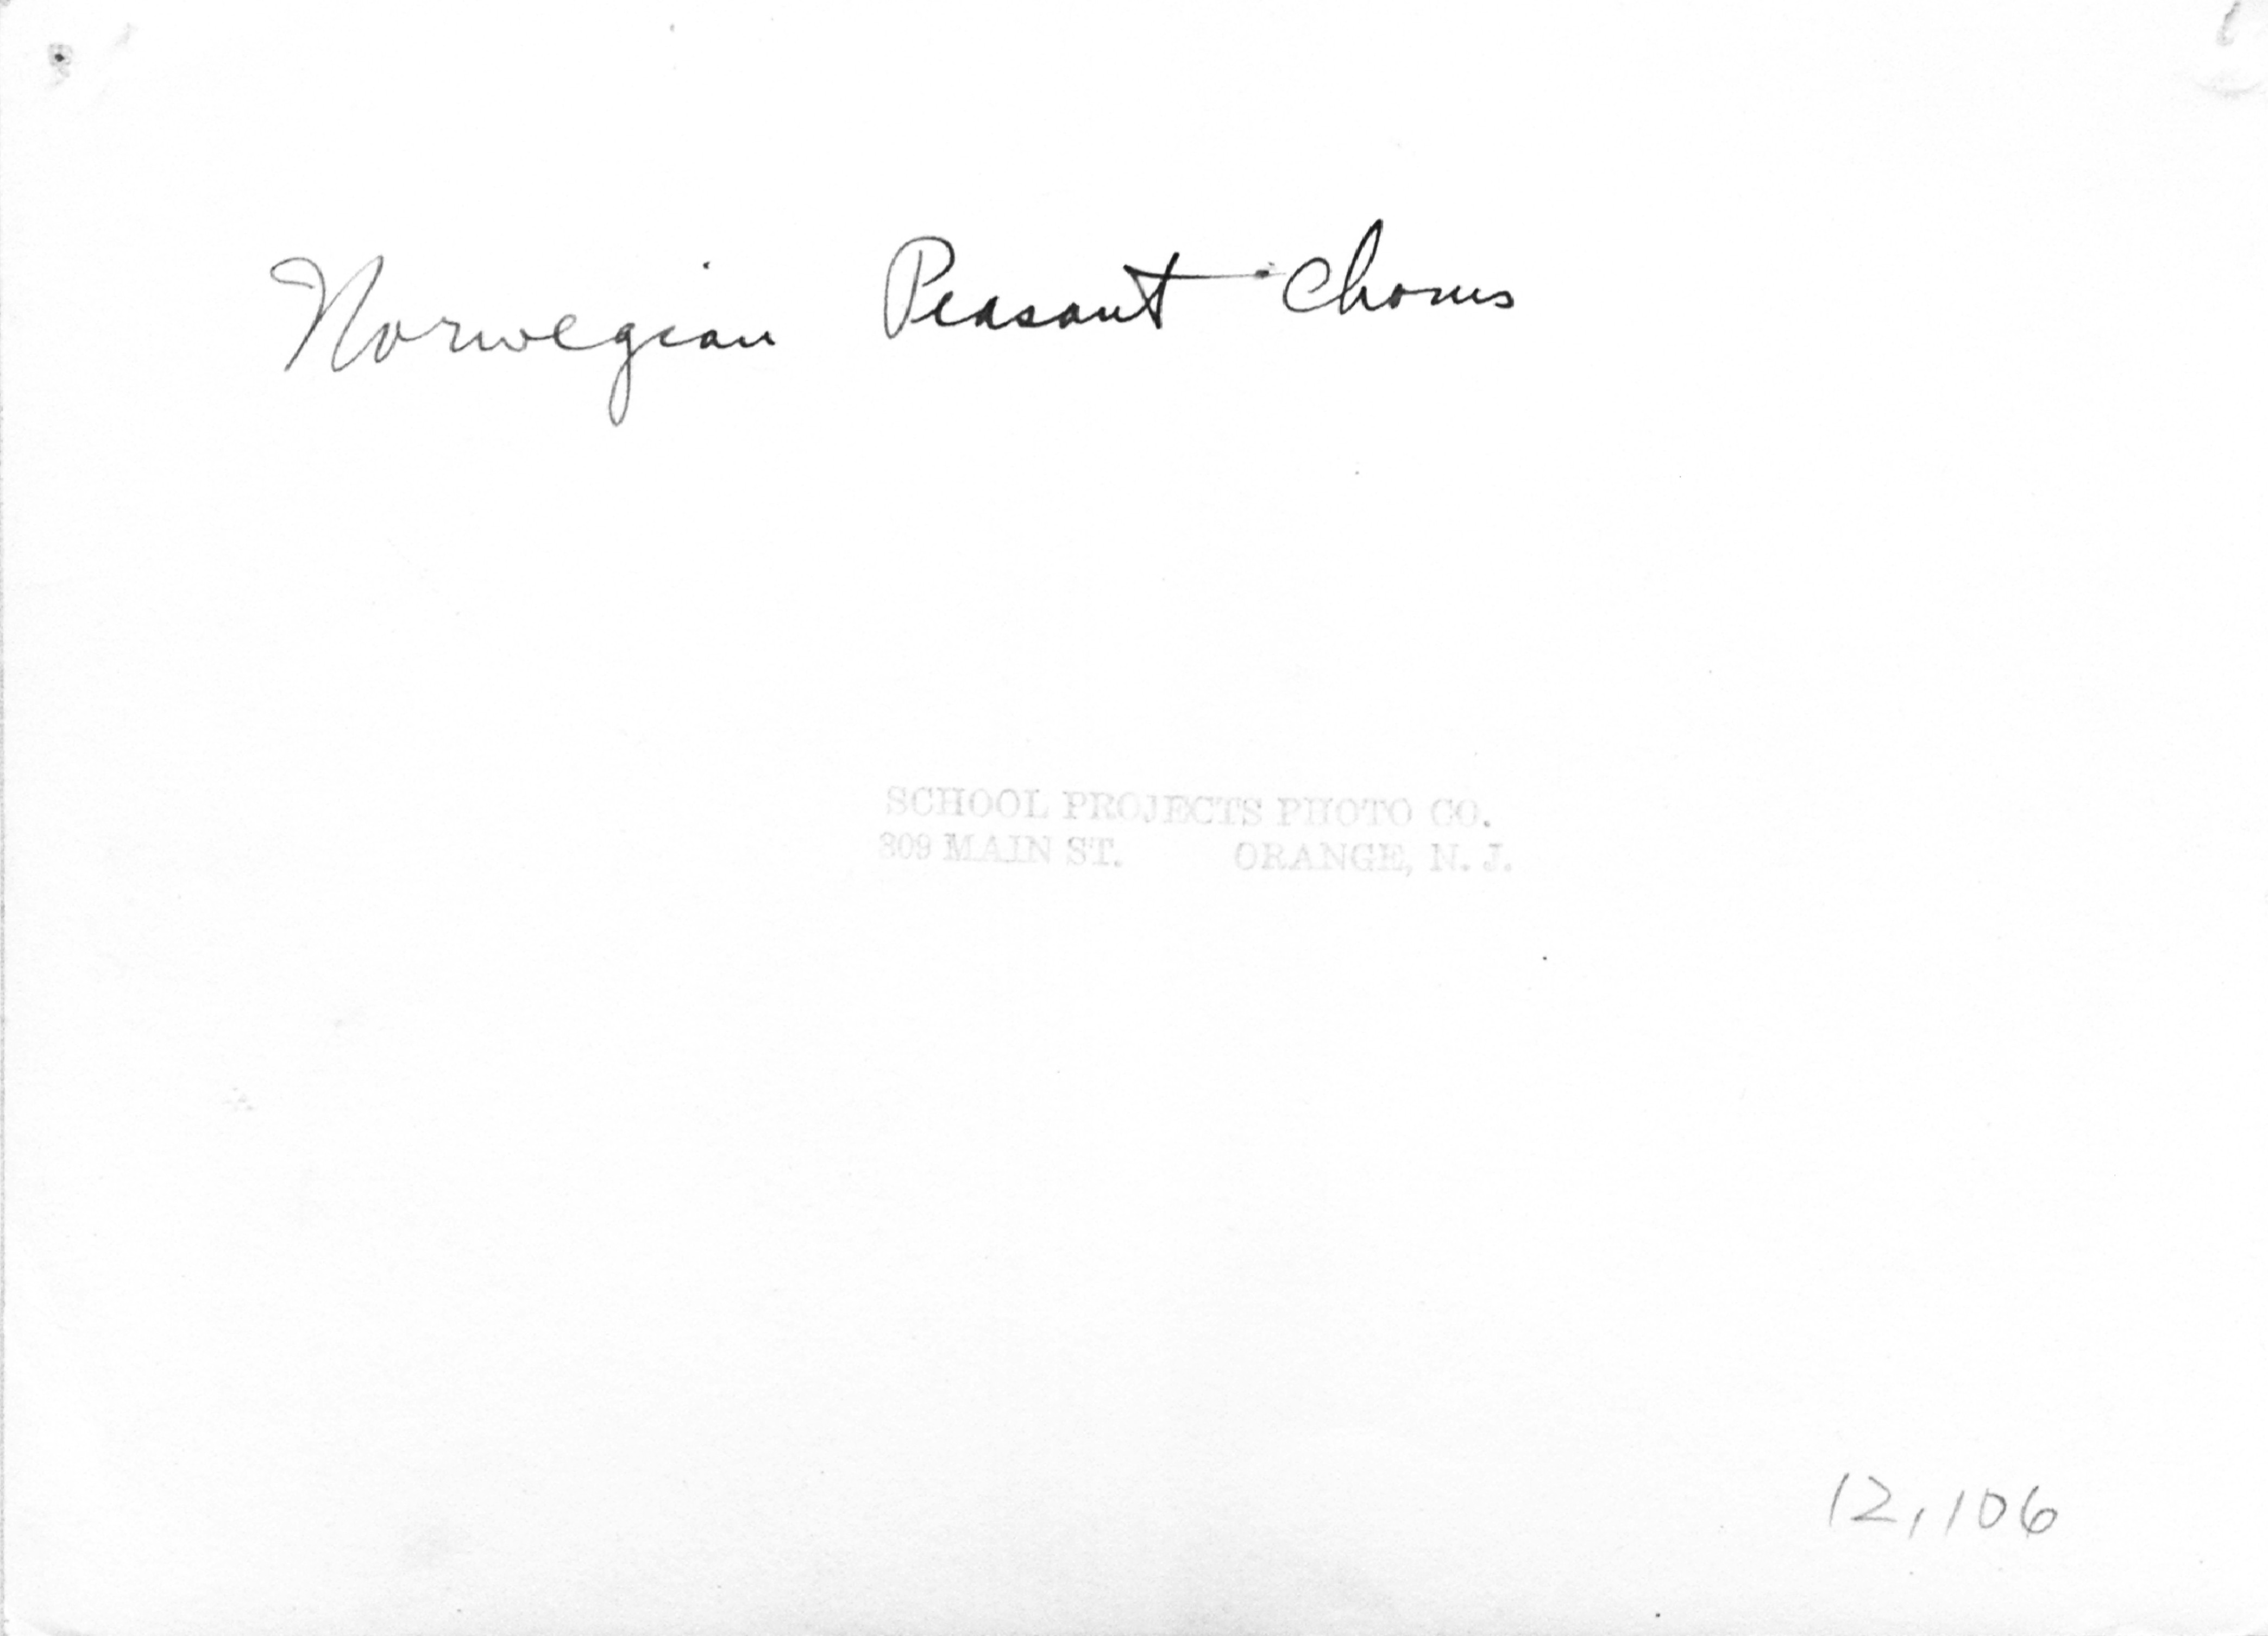 Norwegian Peasant Chorus
SCHOOL PROJECTS PHOTO CO.
309 MAIN ST. ORANGE, N. J.
12,106